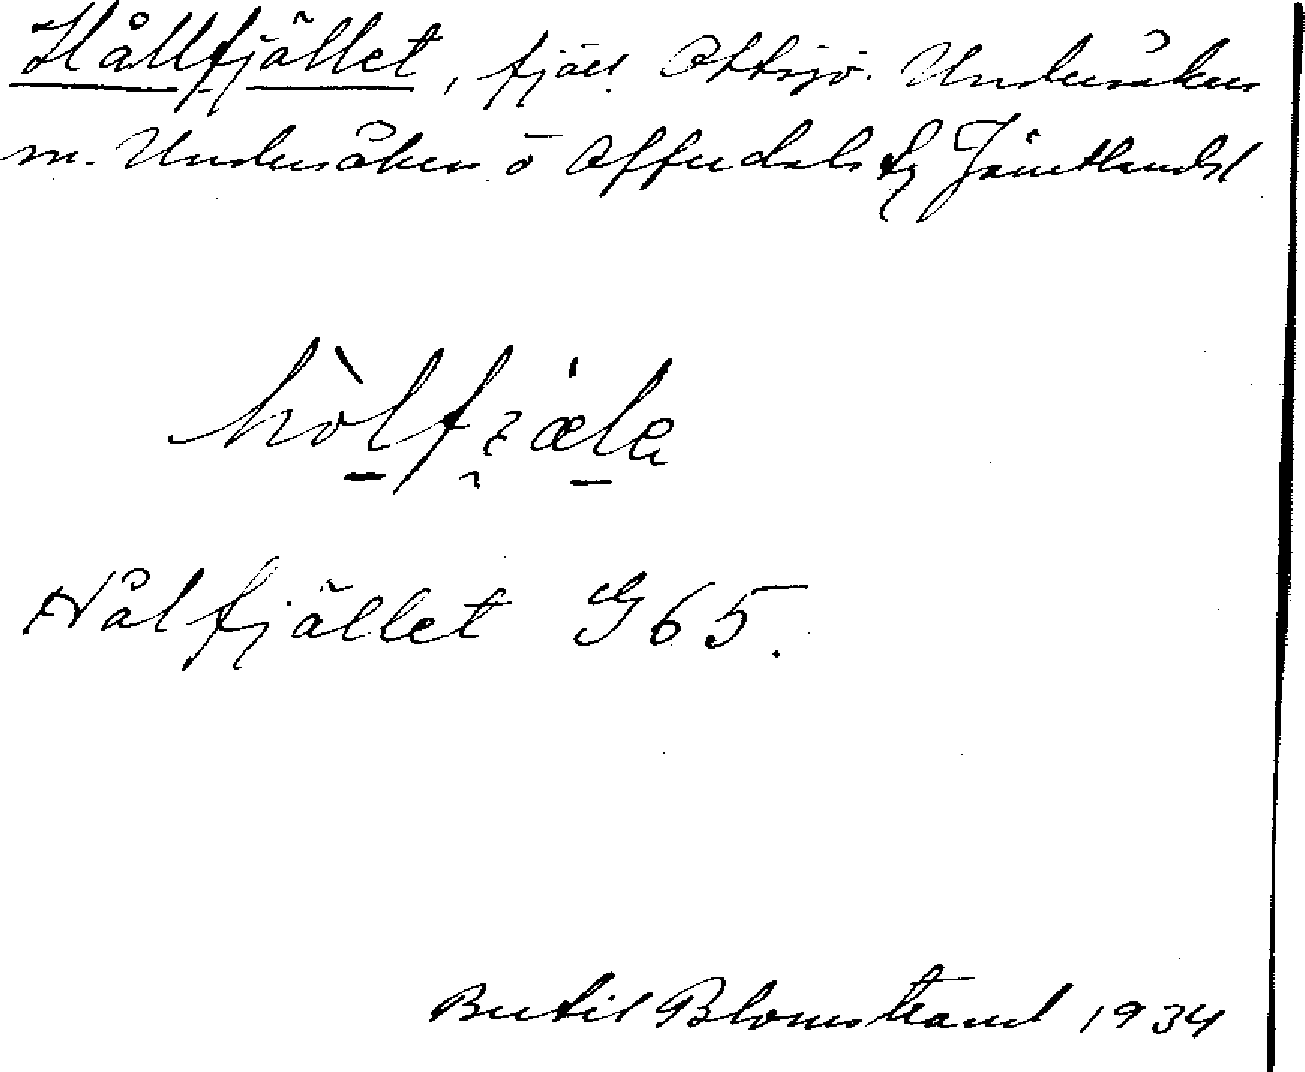 Hållfjället, fjäll. Ottsjö. Undersåkers
m. Undersåkers o Offerdals tg Jämtland
hòlfjæla
Hålfjället G65.
Bertil Blomstrand 1934